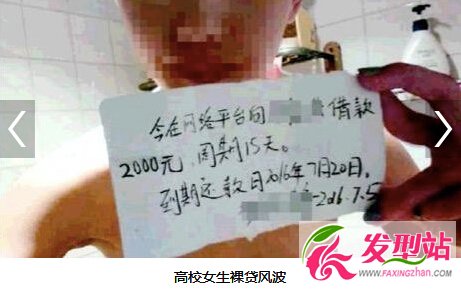 今在网络平台向 借款
2000元，周期15天。
到期还款日2016年7月20日。
-2016.7.5
发型站
www.FAXINGZHAN.com
高校女生裸贷风波